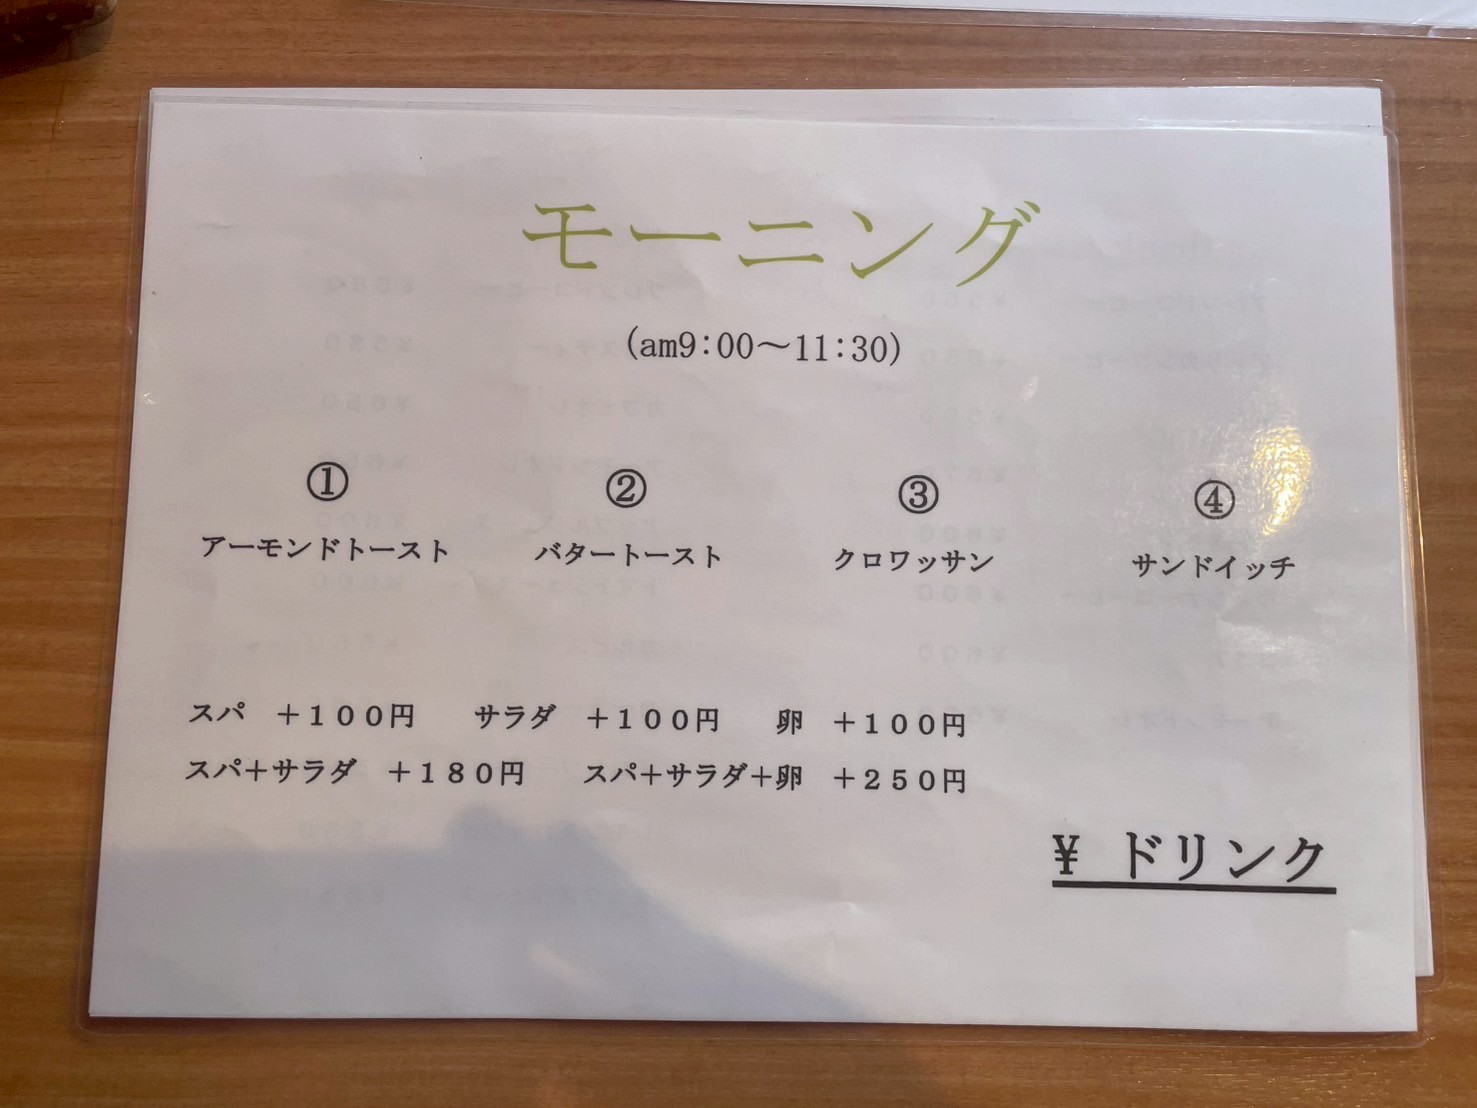 モーニング
(am9:00～11:30)
① ② ③ ④
アーモンドトースト バタートースト クロワッサン サンドイッチ
スパ ＋１００円 サラダ ＋１００円 卵 ＋１００円
スパ＋サラダ ＋１８０円 スパ＋サラダ＋卵 ＋２５０円
¥ ドリンク